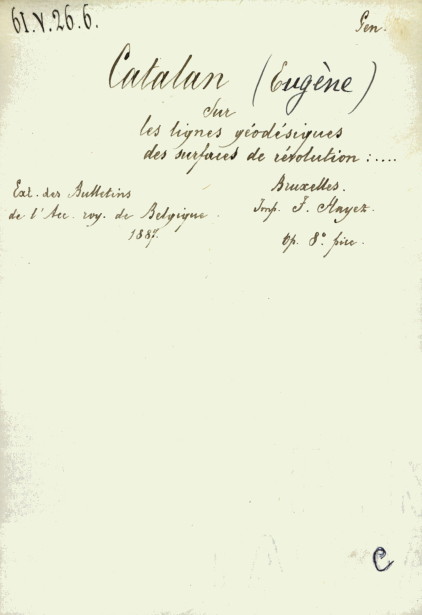 61.V.26.6.
Gen.
Catalan (Eugène)
Sur
les lignes géodésiques
des surfaces de révolution :....
Ext. des Bulletins
de l'Ac. roy. de Belgique.
1887.
Bruxelles.
Imp. F. Hayez.
op. 8°. picc.
C